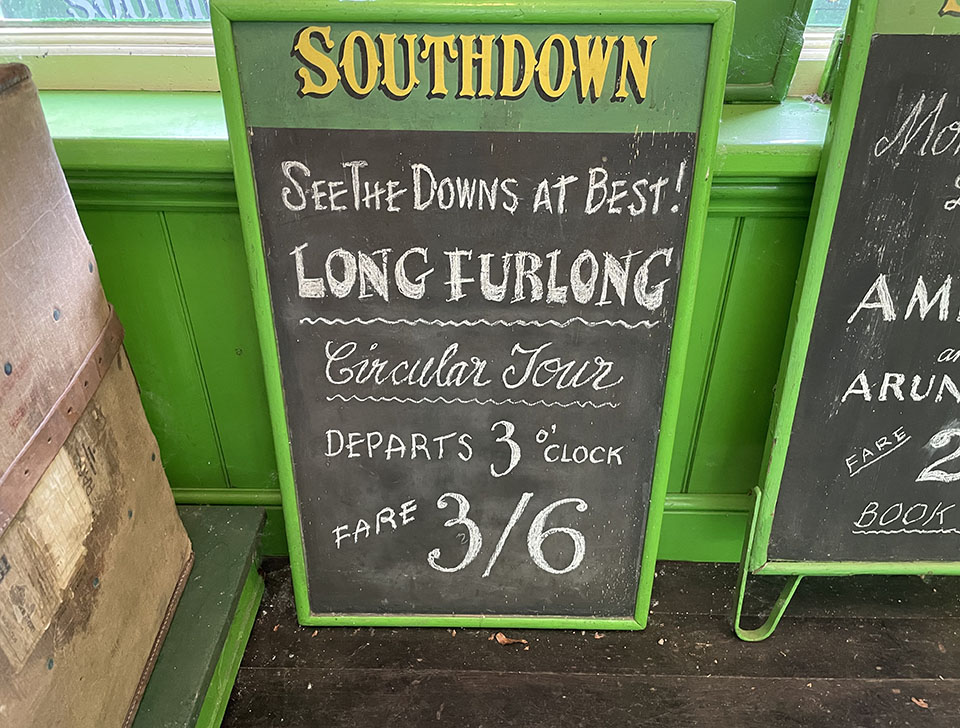 SOUTHDOWN
SEE THE DOWNS AT BEST!
LONG FURLONG
Circular Tour
DEPARTS 3 O'CLOCK
FARE 3/6
AM
ARUN
FARE 2
BOOK